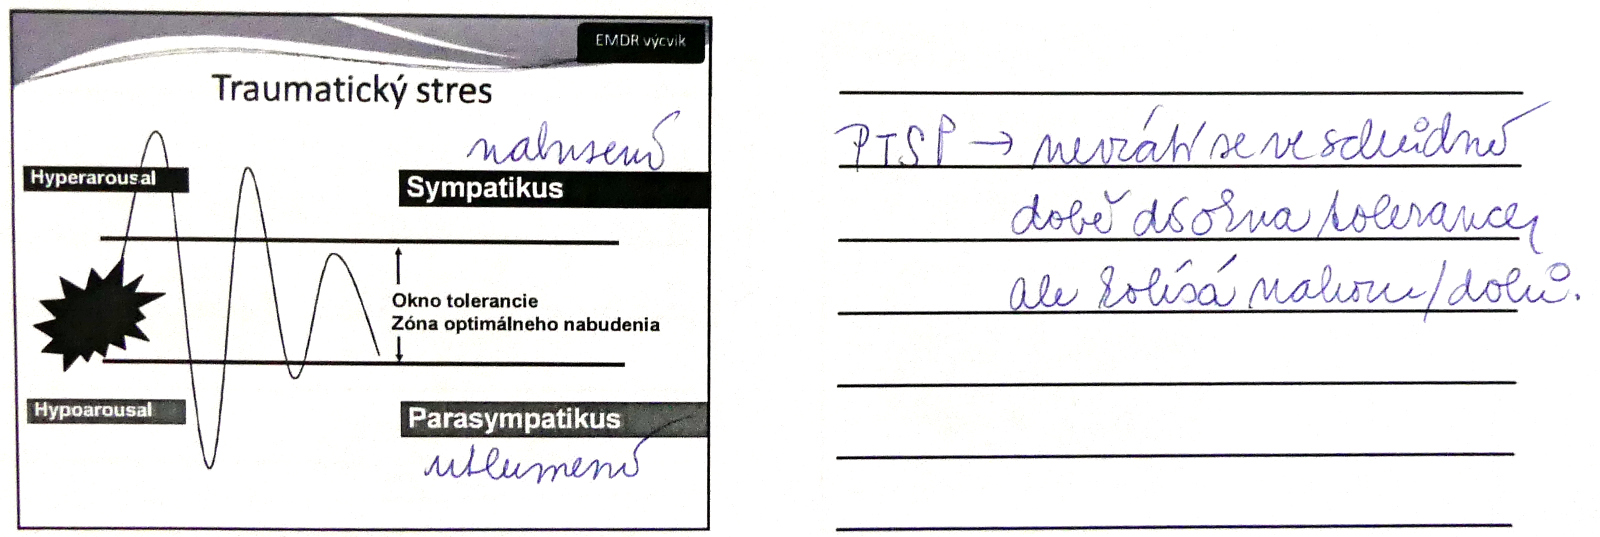 EMDR výcvik
Traumatický stres
nabusení
Hyperarousal
Sympatikus
Okno tolerancie
Zóna optimálneho nabudenia
Hypoarousal
Parasympatikus
utlumení
PTSP → nevrátí se ve schůdné
době do okna tolerance,
ale kolísá nahoru/dolů.